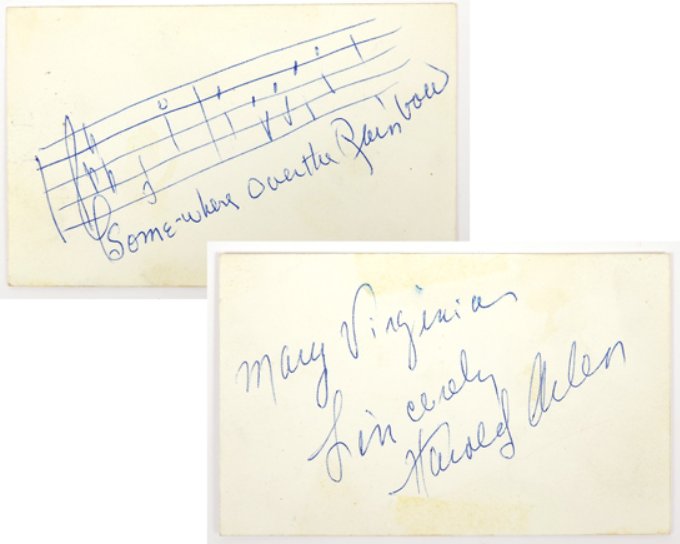 Some-where Over the Rainbow
Mary Virginia
Sincerely
Harold Arlen